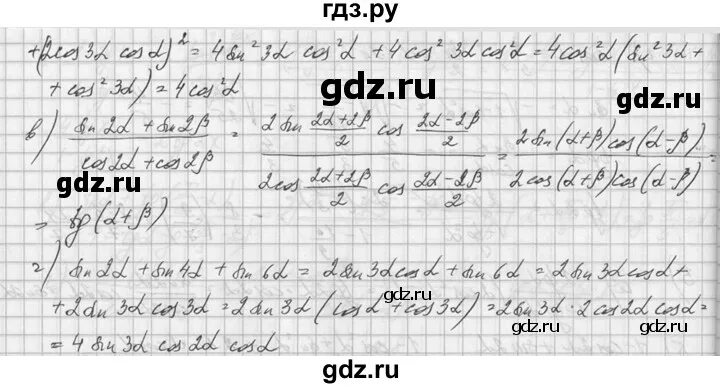 гдз.ру
+(2cos3α cosα)² = 4sin²3α cos²α + 4cos²3α cos²α = 4cos²α(sin²3α +
+ cos²3α) = 4cos²α
gdz.ru
gdz.ru
в) (sin2α + sin2β)/(cos2α + cos2β) = (2sin (2α+2β)/2 cos (2α-2β)/2)/(2cos (2α+2β)/2 cos (2α-2β)/2) = (2sin(α+β)cos(α-β))/(2cos(α+β)cos(α-β)) =
gdz.ru
gdz.ru
= tg(α+β)
г) sin2α + sin4α + sin6α = 2sin3αcosα + sin6α = 2sin3αcosα +
gdz.ru
+ 2sin3α cos3α = 2sin3α(cosα + cos3α) = 2sin3α · 2cos2α cosα =
gdz.ru
gdz.ru
= 4sin3α cos2α cosα
gdz.ru